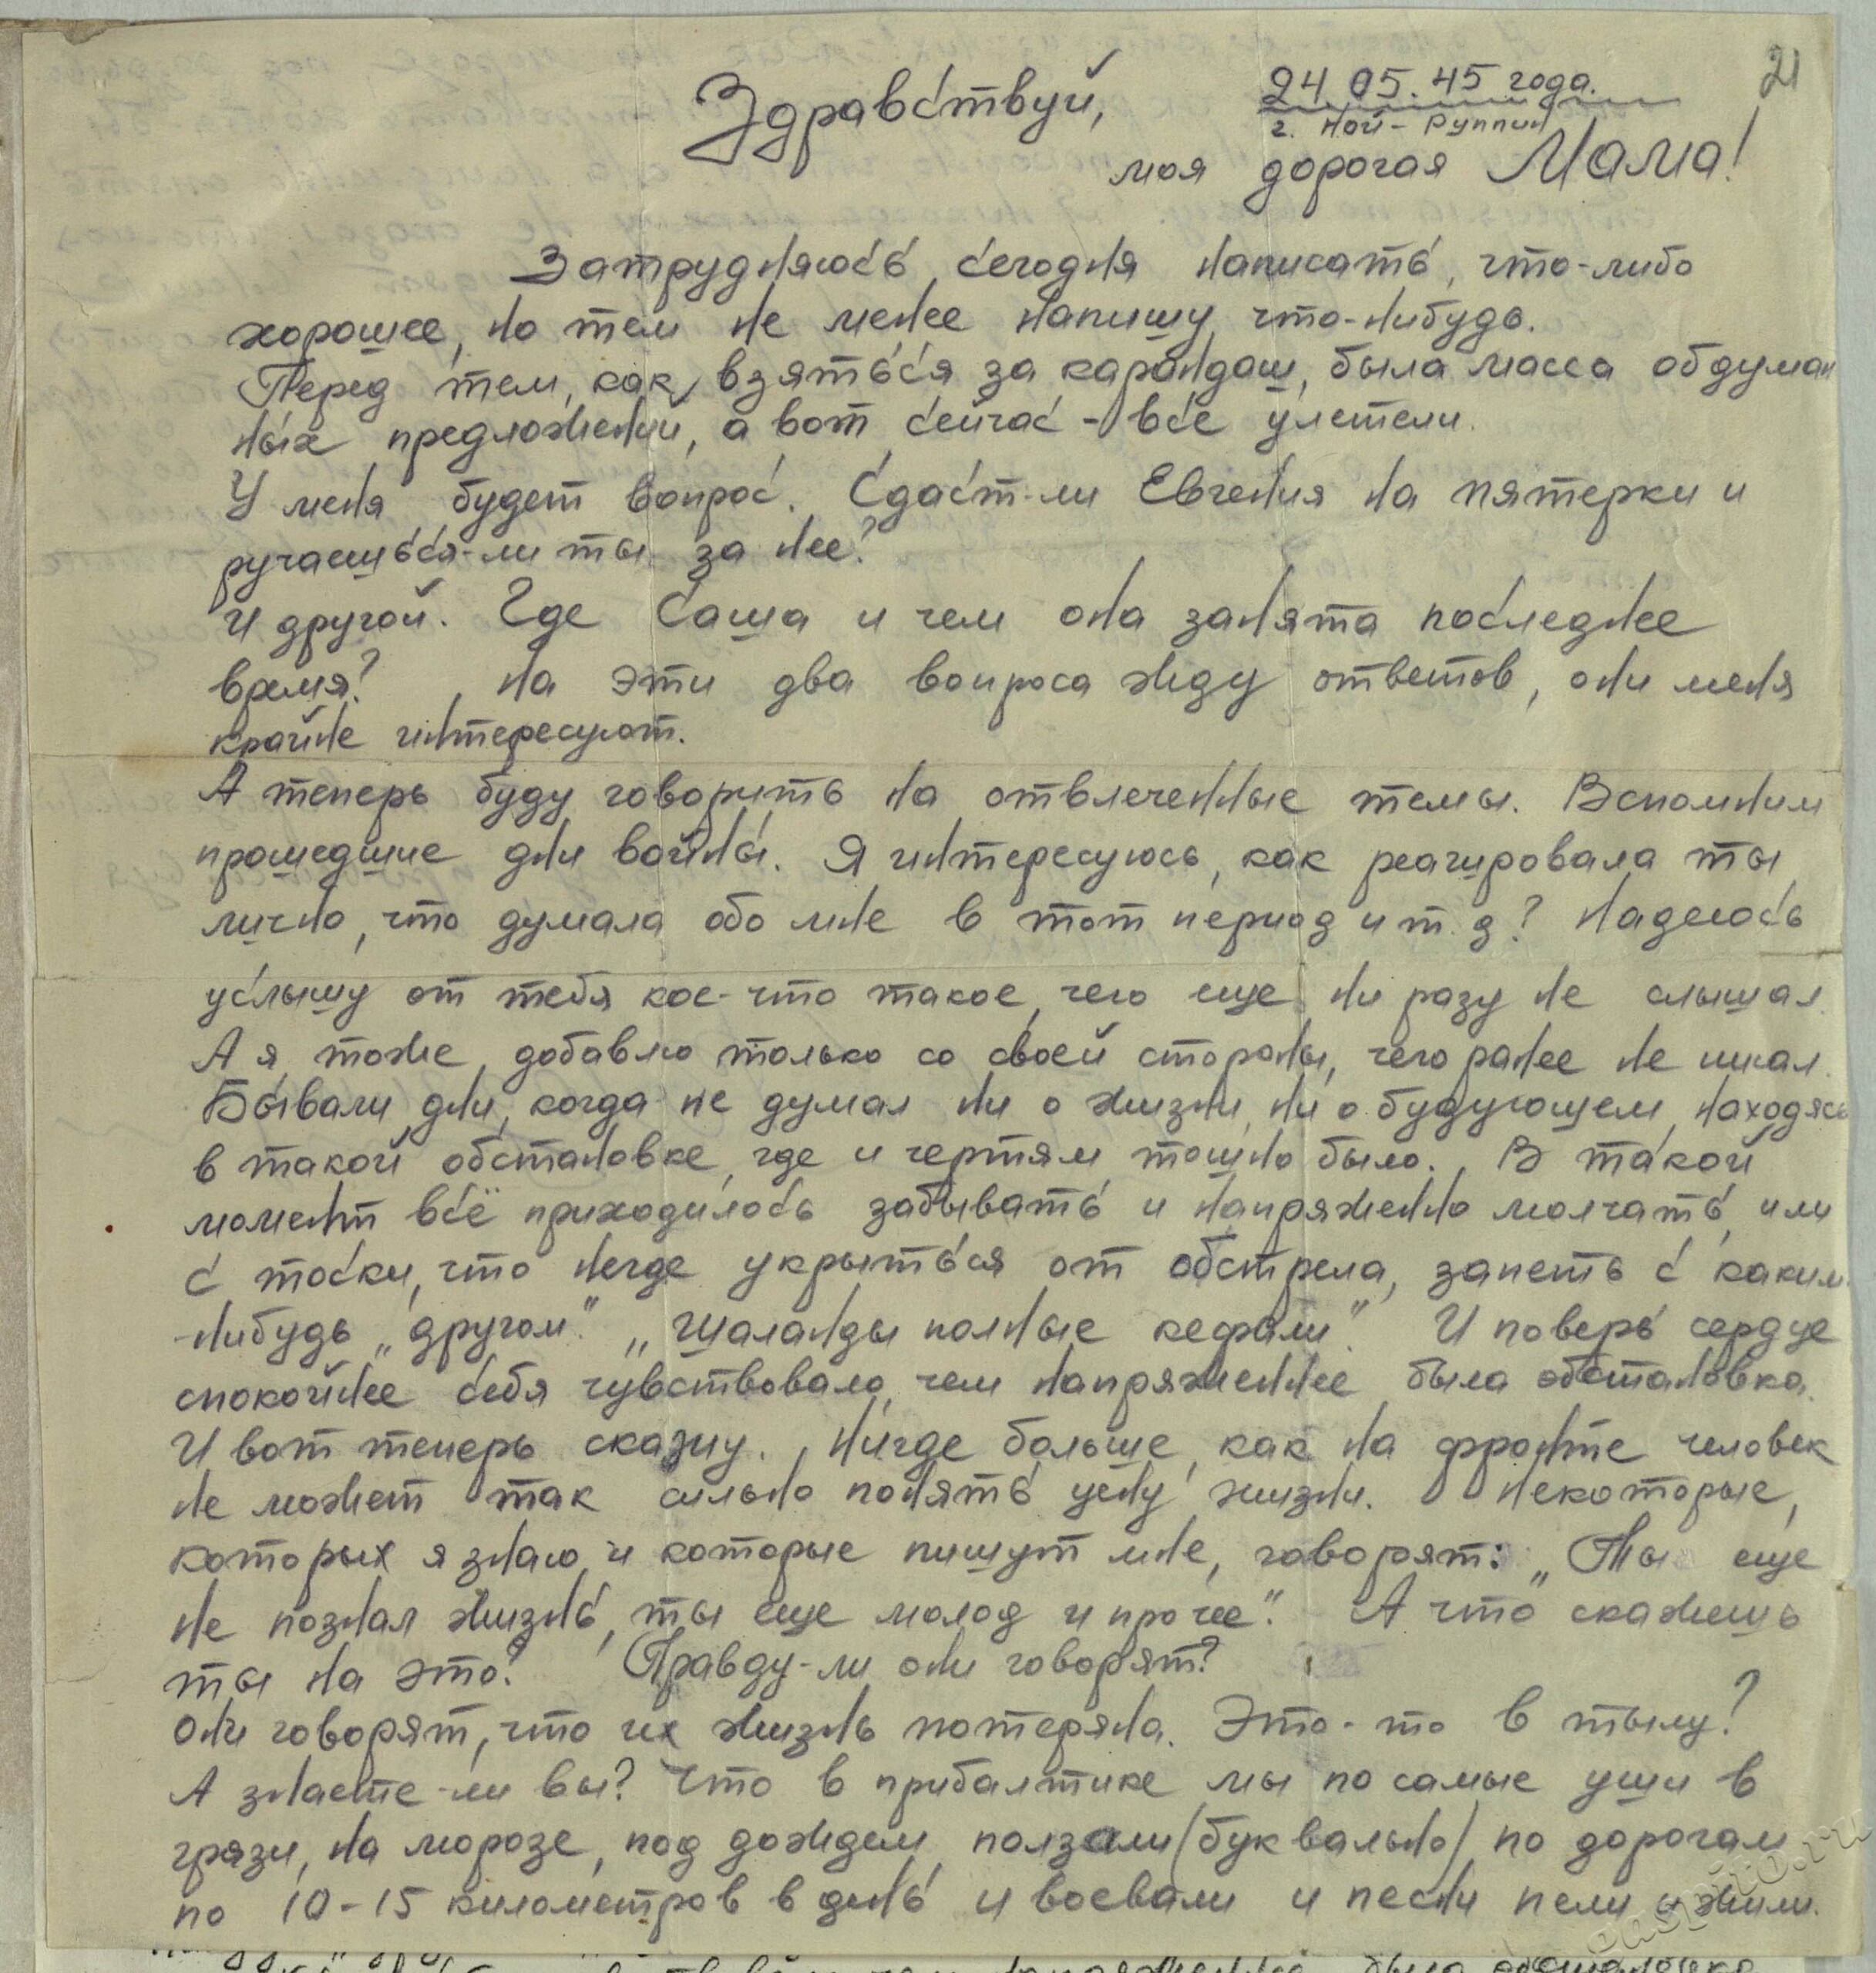 21
24.05.45 года.
г. Ной-Руппин
Здравствуй,
моя дорогая Мама!
Затрудняюсь, сегодня написать, что-либо
хорошее, но тем не менее напишу что-нибудь.
Перед тем, как взяться за карандаш, была масса обдуман
ных предложений, а вот сейчас - все улетели.
У меня будет вопрос. Сдаст-ли Евгения на пятерки и
ручаешься-ли ты за нее?
И другой. Где Саша и чем она занята последнее
время? На эти два вопроса жду ответов, они меня
крайне интересуют.
А теперь буду говорить на отвлеченные темы. Вспомним
прошедшие дни войны. Я интересуюсь, как реагировала ты
лично, что думала обо мне в тот период и т.д? Надеюсь
услышу от тебя кое-что такое, чего еще ни разу не слышал.
А я тоже, добавлю только со своей стороны, чего ранее не писал.
Бывали дни, когда не думал ни о жизни, ни о будующем, находясь
в такой обстановке, где и чертям тошно было. В такой
момент всё приходилось забывать и напряженно молчать, или
с тоски, что негде укрыться от обстрела, запеть с каким
-нибудь „другом" „Шаланды полные кефали". И поверь сердце
спокойнее себя чувствовало, чем напряженнее была обстановка.
И вот теперь скажу. Нигде больше, как на фронте человек
не может так сильно понять цену жизни. Некоторые,
которых я знаю, и которые пишут мне, говорят: „Ты еще
не познал жизнь, ты еще молод и прочее". А что скажешь
ты на это? Правду-ли они говорят?
Они говорят, что их жизнь потеряна. Это-то в тылу?
А знаете-ли вы? Что в прибалтике мы по самые уши в
грязи, на морозе, под дождем ползали (буквально) по дорогам
по 10-15 километров в день и воевали и песни пели и жили.
easpito.ru
была обстановка